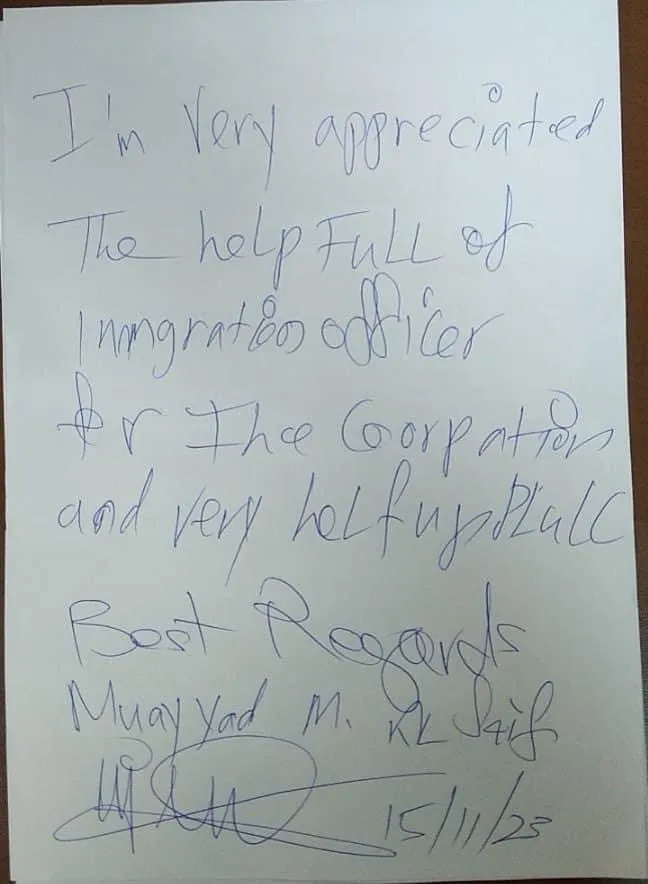 I'm Very appreciated
The help Full of
Inmgration officer
for The Corpation
and very
Best Regards
Muayyad M. KL Saif
15/11/23